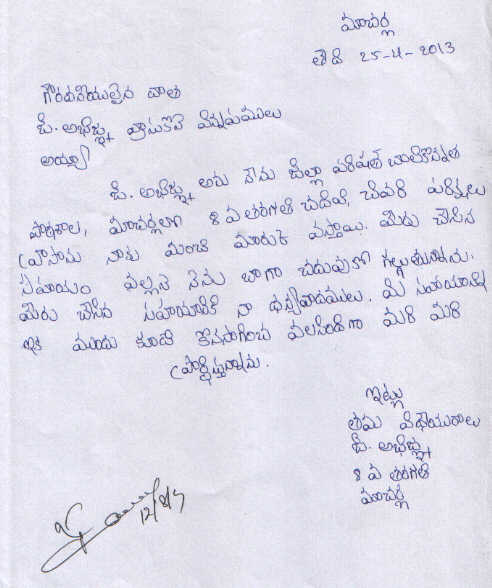 మాచర్ల
తేది 25-4-2013
గౌరవనీయులైన దాత
బి. అఖిల వ్రాసుకొనే విన్నపములు
అయ్యా
బి. అఖిల అను నేను జిల్లా పరిషత్ బాలికోన్నత
పాఠశాల, మాచర్లలో 8 వ తరగతి చదివి, చివరి పరీక్షలు
వ్రాసాను నాకు మంచి మారుకు వస్తాయి. మీరు చేసిన
సహాయం వల్లనే నేను బాగా చదువుకో గల్గుతున్నాను.
మీరు చేసిన సహాయానికి నా ధన్యవాదములు. మీ సహాయాన్ని
ఇక ముందు కూడా కొనసాగించ వలసిందిగా మరీ మరీ
ప్రార్థిస్తున్నాను.
ఇట్లు
తమ విధేయురాలు
బి. అఖిల
8 వ తరగతి
మాచర్ల